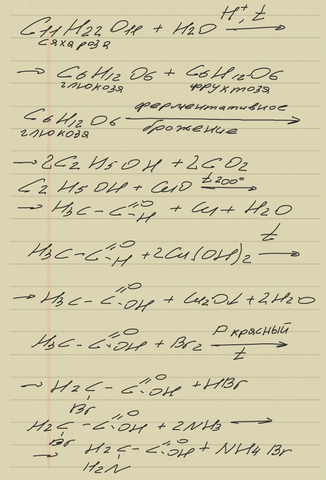 C11H22O11 + H2O H+, t →
сахароза
→ C6H12O6 + C6H12O6
глюкоза фруктоза
C6H12O6 ферментативное →
глюкоза брожение
→ 2C2H5OH + 2CO2
C2H5OH + CuO t 200° →
→ H3C – C =O -H + Cu + H2O
H3C – C =O -H + 2Cu(OH)2 t →
→ H3C – C =O -OH + Cu2O↓ + 2H2O
H3C – C =O -OH + Br2 P красный → t
→ H2C – C =O -OH + HBr
Br
H2C – C =O -OH + 2NH3 →
Br
→ H2C – C =O -OH + NH4Br
H2N